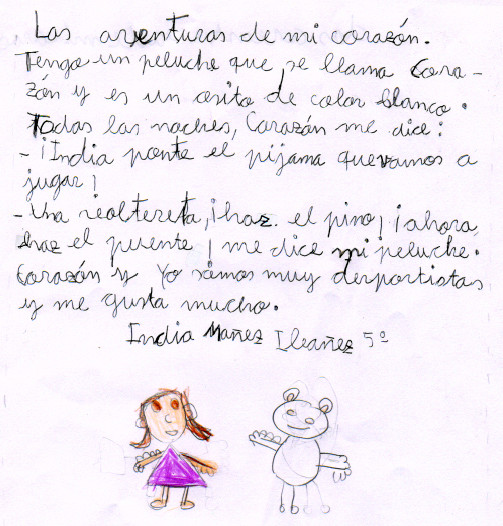 Las aventuras de mi corazón.
Tengo un peluche que se llama Cora-
zón y es un osito de color blanco.
Todas las noches, Corazón me dice:
- ¡India ponte el pijama que vamos a
jugar!
- Una voltereta, ¡haz el pino! ¡ahora,
haz el puente! me dice mi peluche.
Corazón y Yo somos muy deportistas
y me gusta mucho.
India Mañez Ibañez 5º